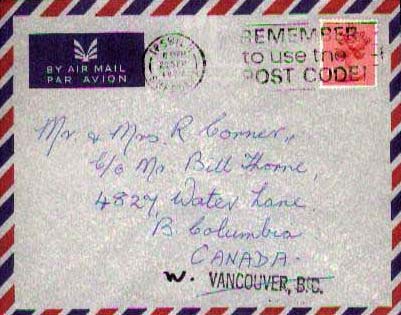 BY AIR MAIL
PAR AVION
IPSWICH
REMEMBER
to use the
POST CODE!
Mr. & Mrs. R Corner,
C/o Mr. Bill Thorne,
4827 Water Lane.
B. Columbia
CANADA.
W. VANCOUVER, B.C.